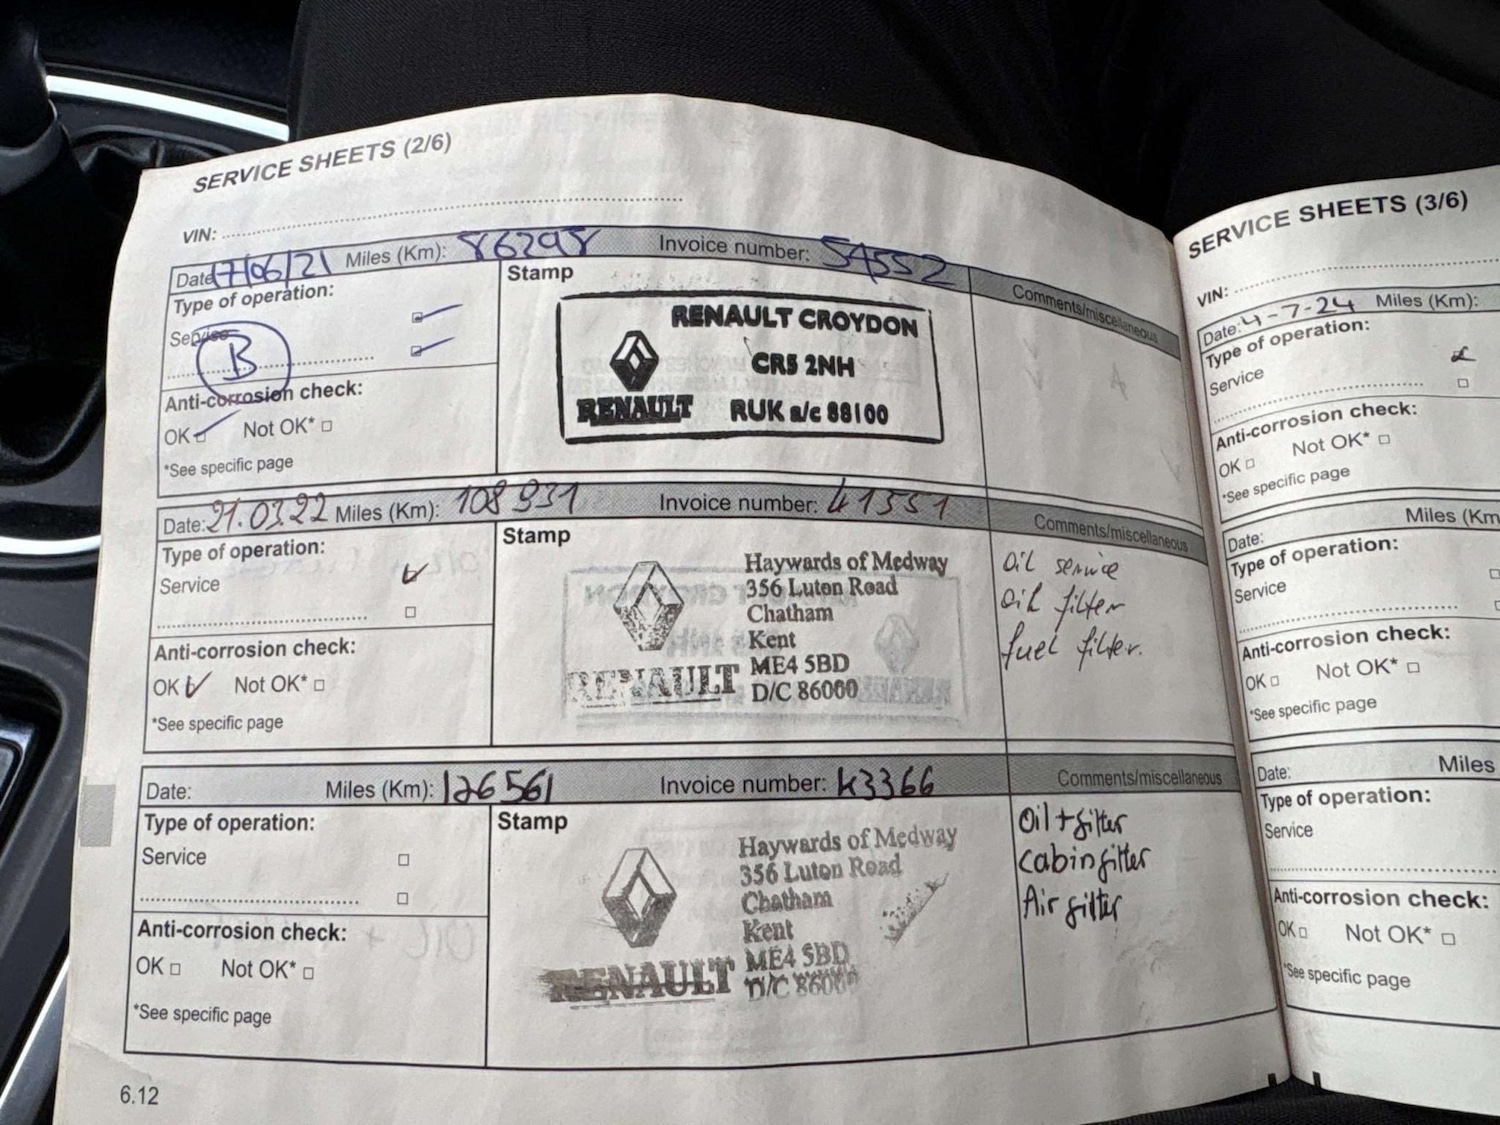 SERVICE SHEETS (2/6)
VIN:
Date: 17/06/21 Miles (Km): 86298 Invoice number: 54552
Type of operation:
Service
B
Anti-corrosion check:
OK Not OK*
*See specific page
Stamp
RENAULT CROYDON
CR5 2NH
RENAULT RUK a/c 88100
Comments/miscellaneous
Date: 21.03.22 Miles (Km): 108931 Invoice number: 41551
Type of operation:
Service
Anti-corrosion check:
OK Not OK*
*See specific page
Stamp
Haywards of Medway
356 Luton Road
Chatham
Kent
ME4 5BD
RENAULT D/C 86000
Comments/miscellaneous
Oil service
Oil filter
fuel filter.
Date: Miles (Km): 126561 Invoice number: 43366
Type of operation:
Service
Anti-corrosion check:
OK Not OK*
*See specific page
Stamp
Haywards of Medway
356 Luton Road
Chatham
Kent
ME4 5BD
RENAULT D/C 86000
Comments/miscellaneous
Oil + filter
Cabin filter
Air filter
6.12
SERVICE SHEETS (3/6)
VIN:
Date: 4-7-24 Miles (Km):
Type of operation:
Service
Anti-corrosion check:
OK Not OK*
*See specific page
Date: Miles (Km
Type of operation:
Service
Anti-corrosion check:
OK Not OK*
*See specific page
Date: Miles
Type of operation:
Service
Anti-corrosion check:
OK Not OK*
*See specific page